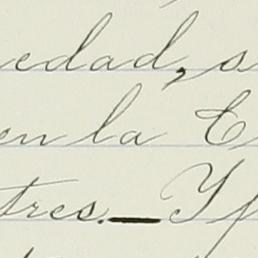 edad, s
en la E
tres._ Y